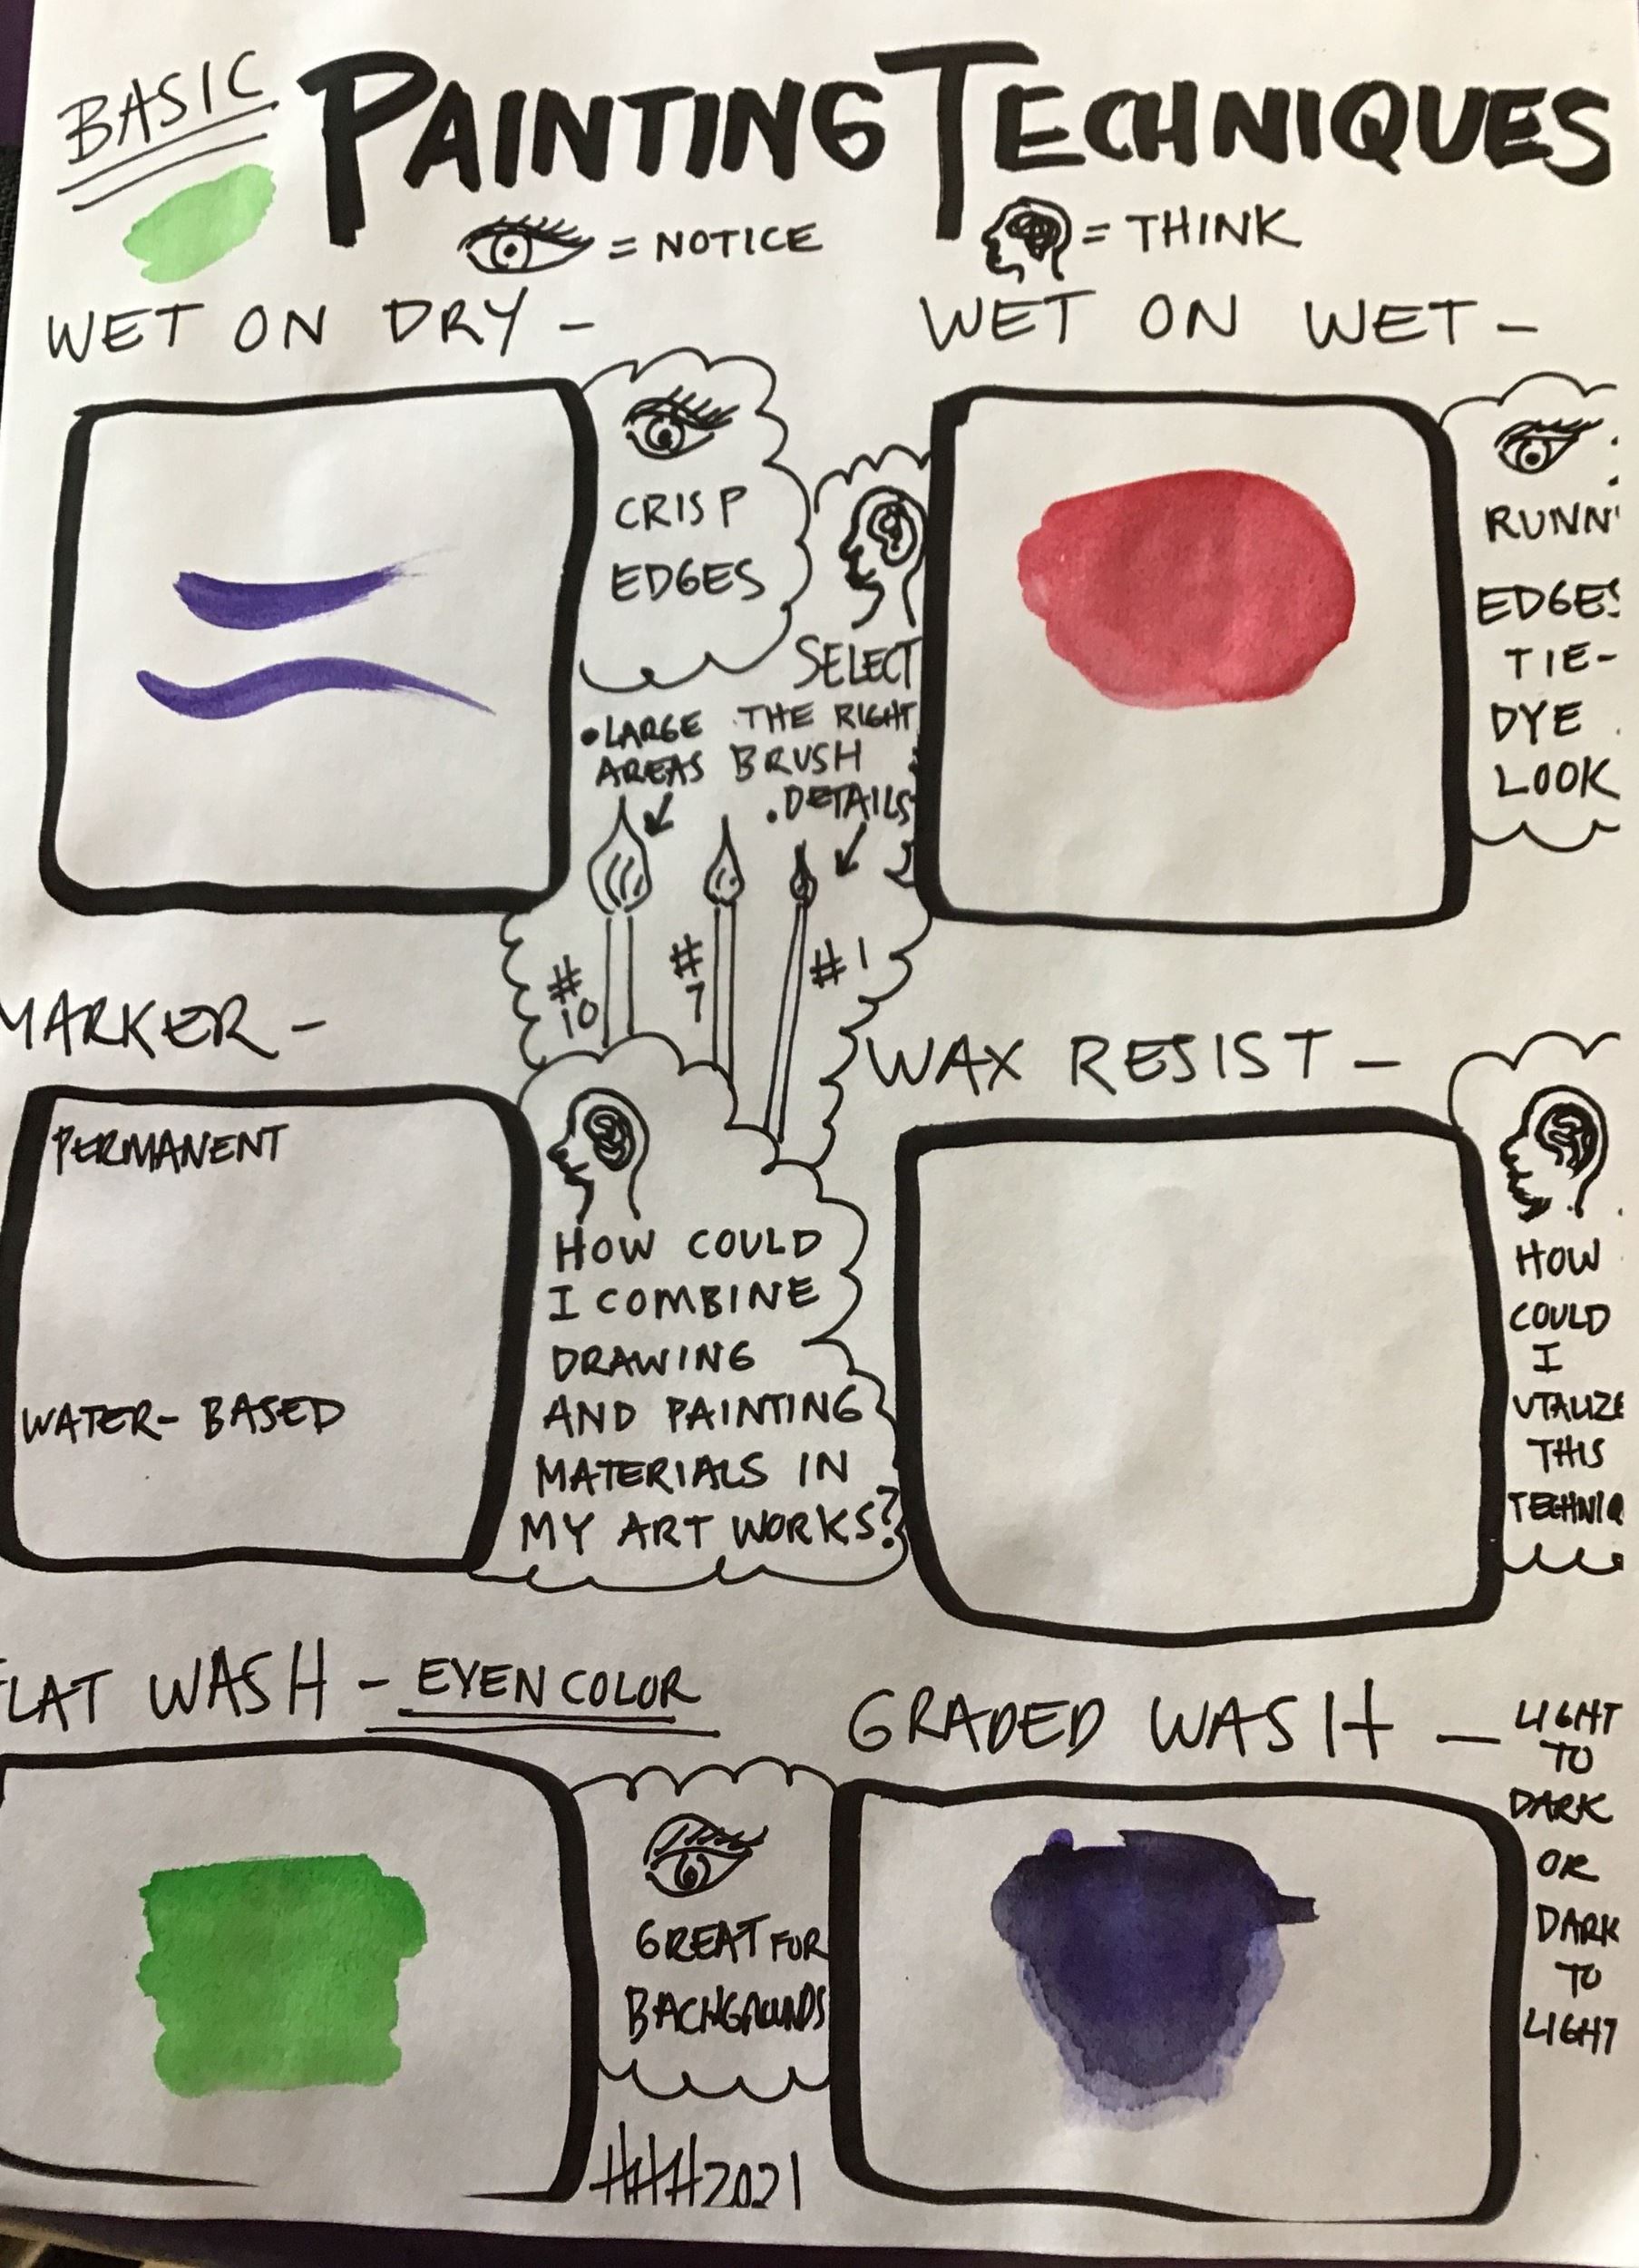 BASIC
PAINTING TECHNIQUES
= NOTICE
= THINK
WET ON DRY -
CRISP
EDGES
SELECT
THE RIGHT
BRUSH
• LARGE
AREAS
. DETAILS
#10
#7
#1
WET ON WET -
EDGES
TIE-
DYE
LOOK
MARKER -
PERMANENT
WATER-BASED
HOW COULD
I COMBINE
DRAWING
AND PAINTING
MATERIALS IN
MY ART WORKS?
WAX RESIST -
HOW
COULD
I
UTALIZE
THIS
TECHNIQ
FLAT WASH - EVEN COLOR
GREAT FOR
BACHGROUNDS
GRADED WASH -
LIGHT
TO
DARK
OR
DARK
TO
LIGHT
HHH 2021